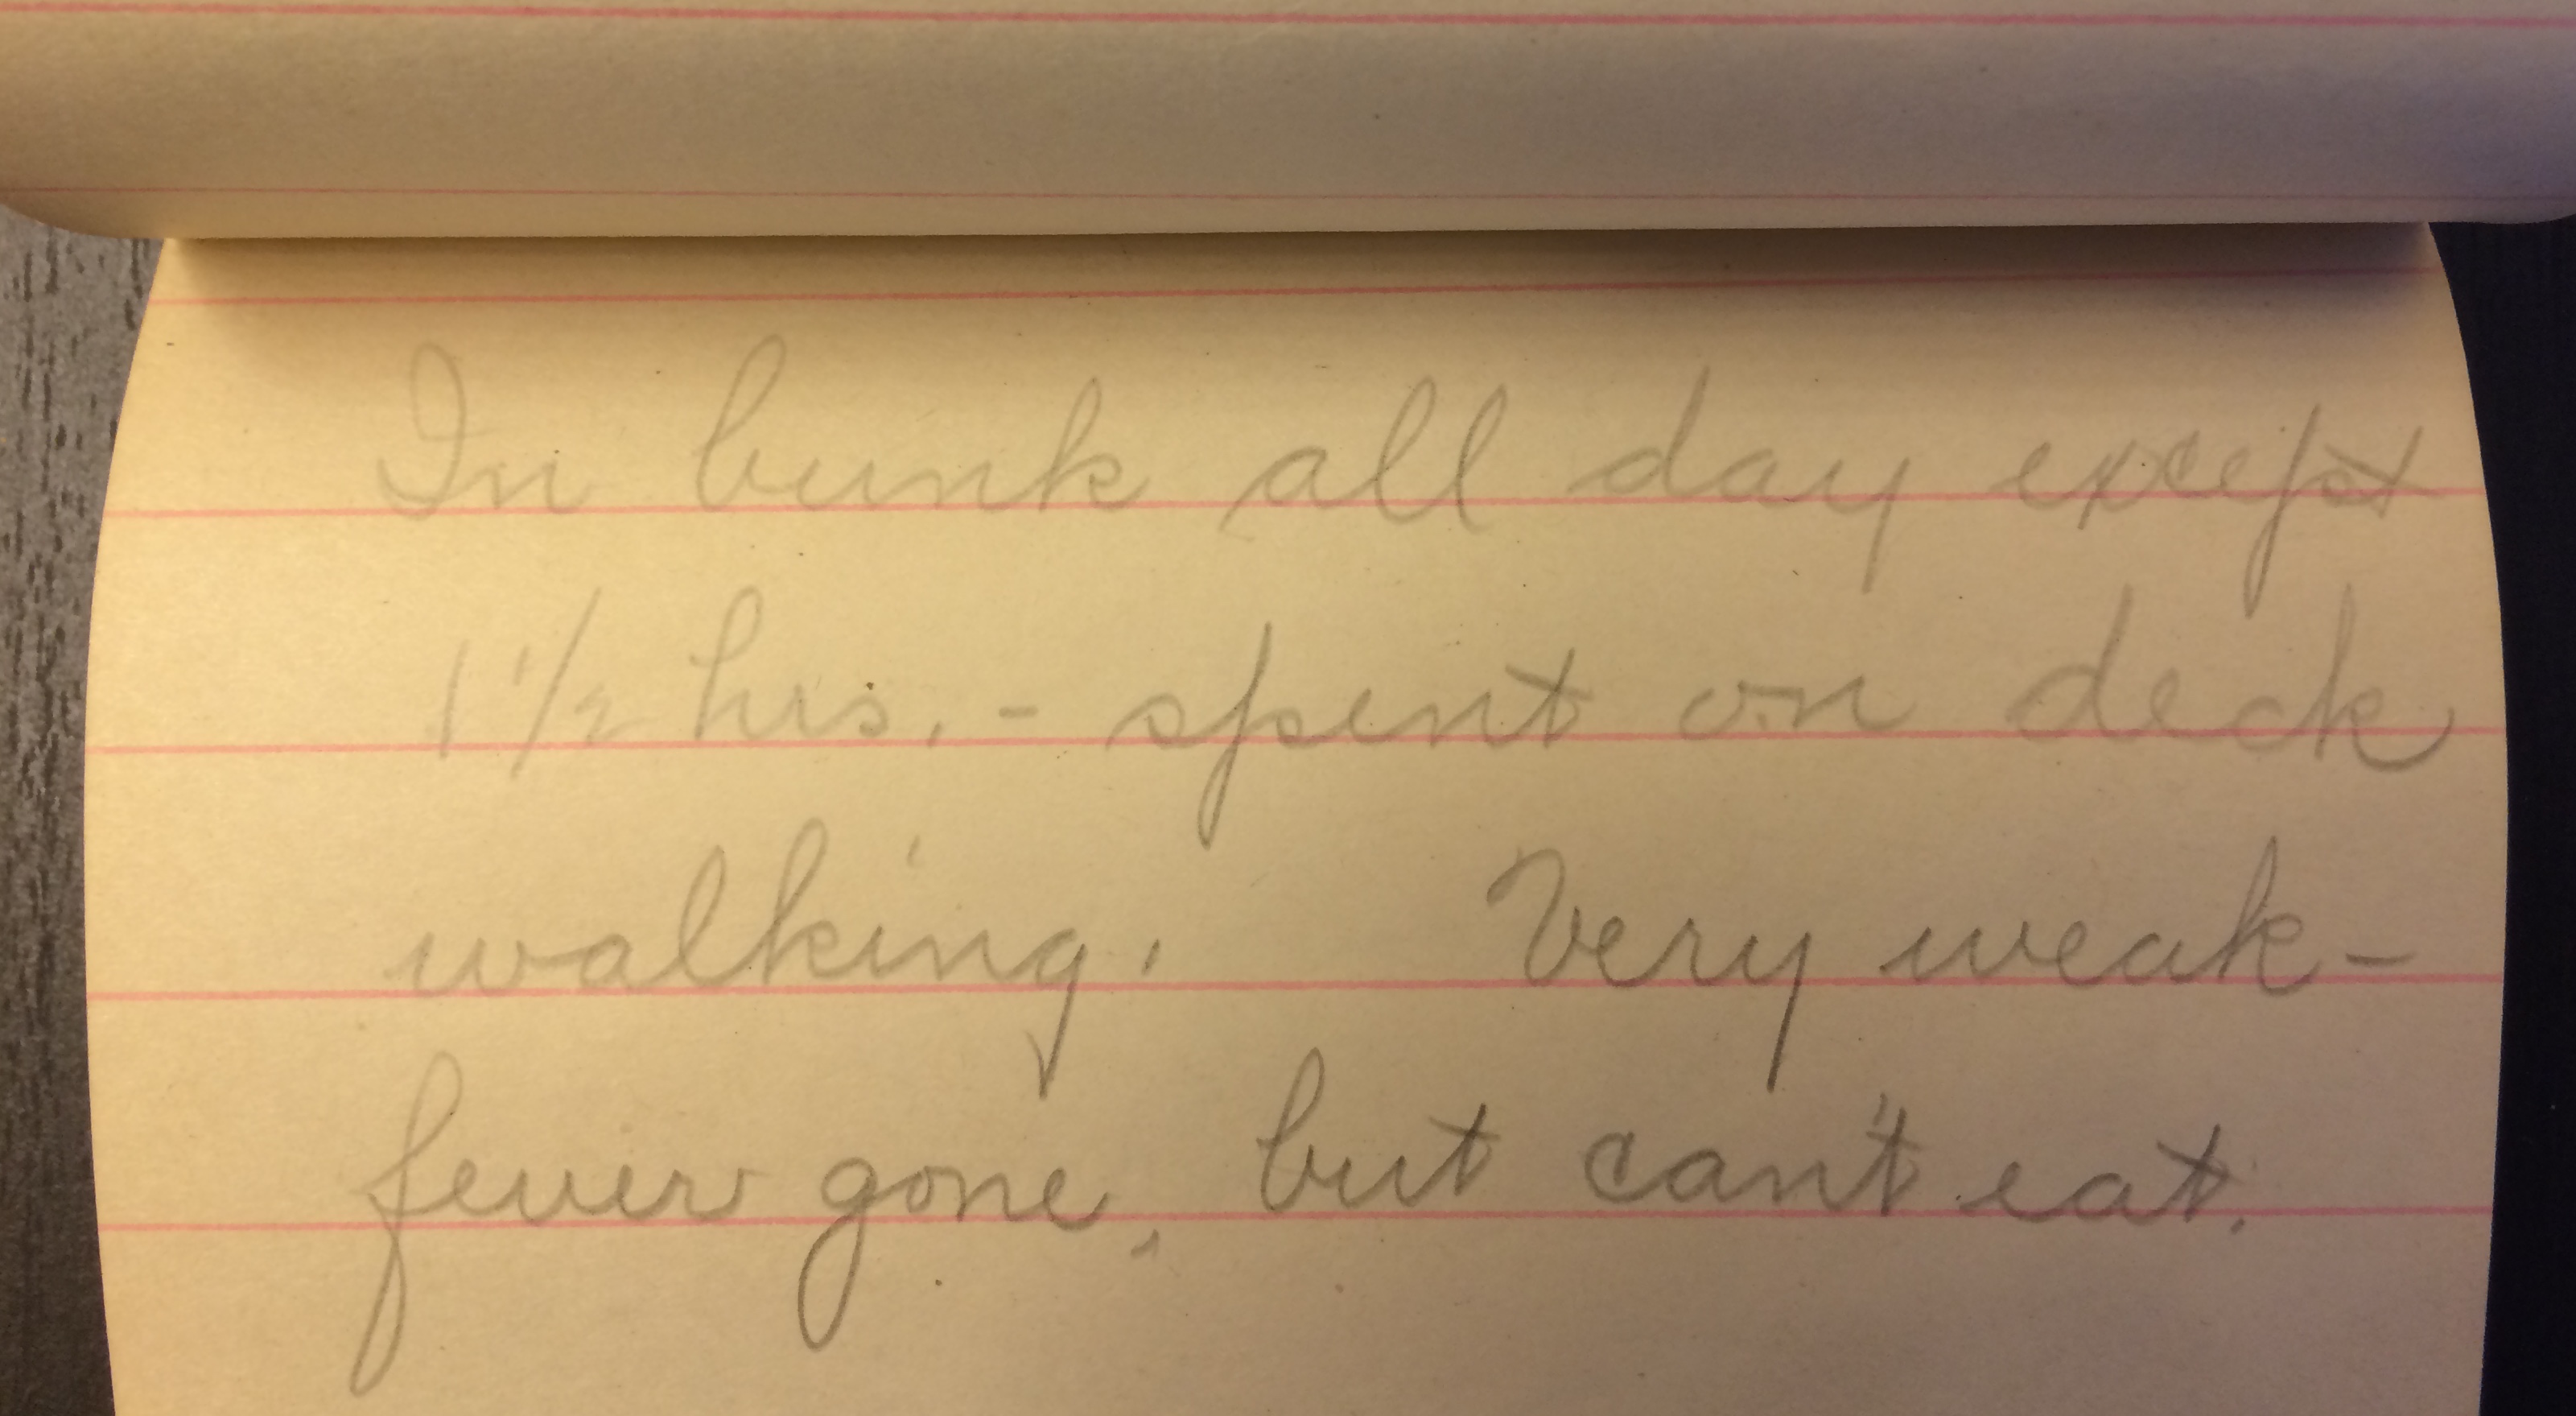 In bunk all day except
1 1/2 hrs. - spent on deck
walking. Very weak -
fever gone, but can't eat.